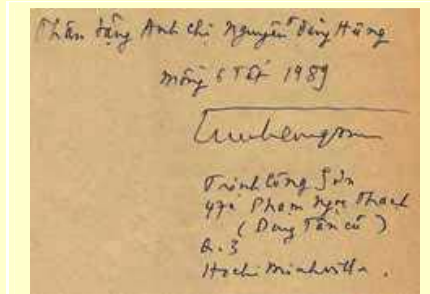 Thân tặng Anh Chị Nguyễn Đăng Hưng
mồng 6 Tết 1989
Trịnh Công Sơn
47c Phạm Ngọc Thạch
(Duy Tân cũ)
Q.3
Hochiminhville.